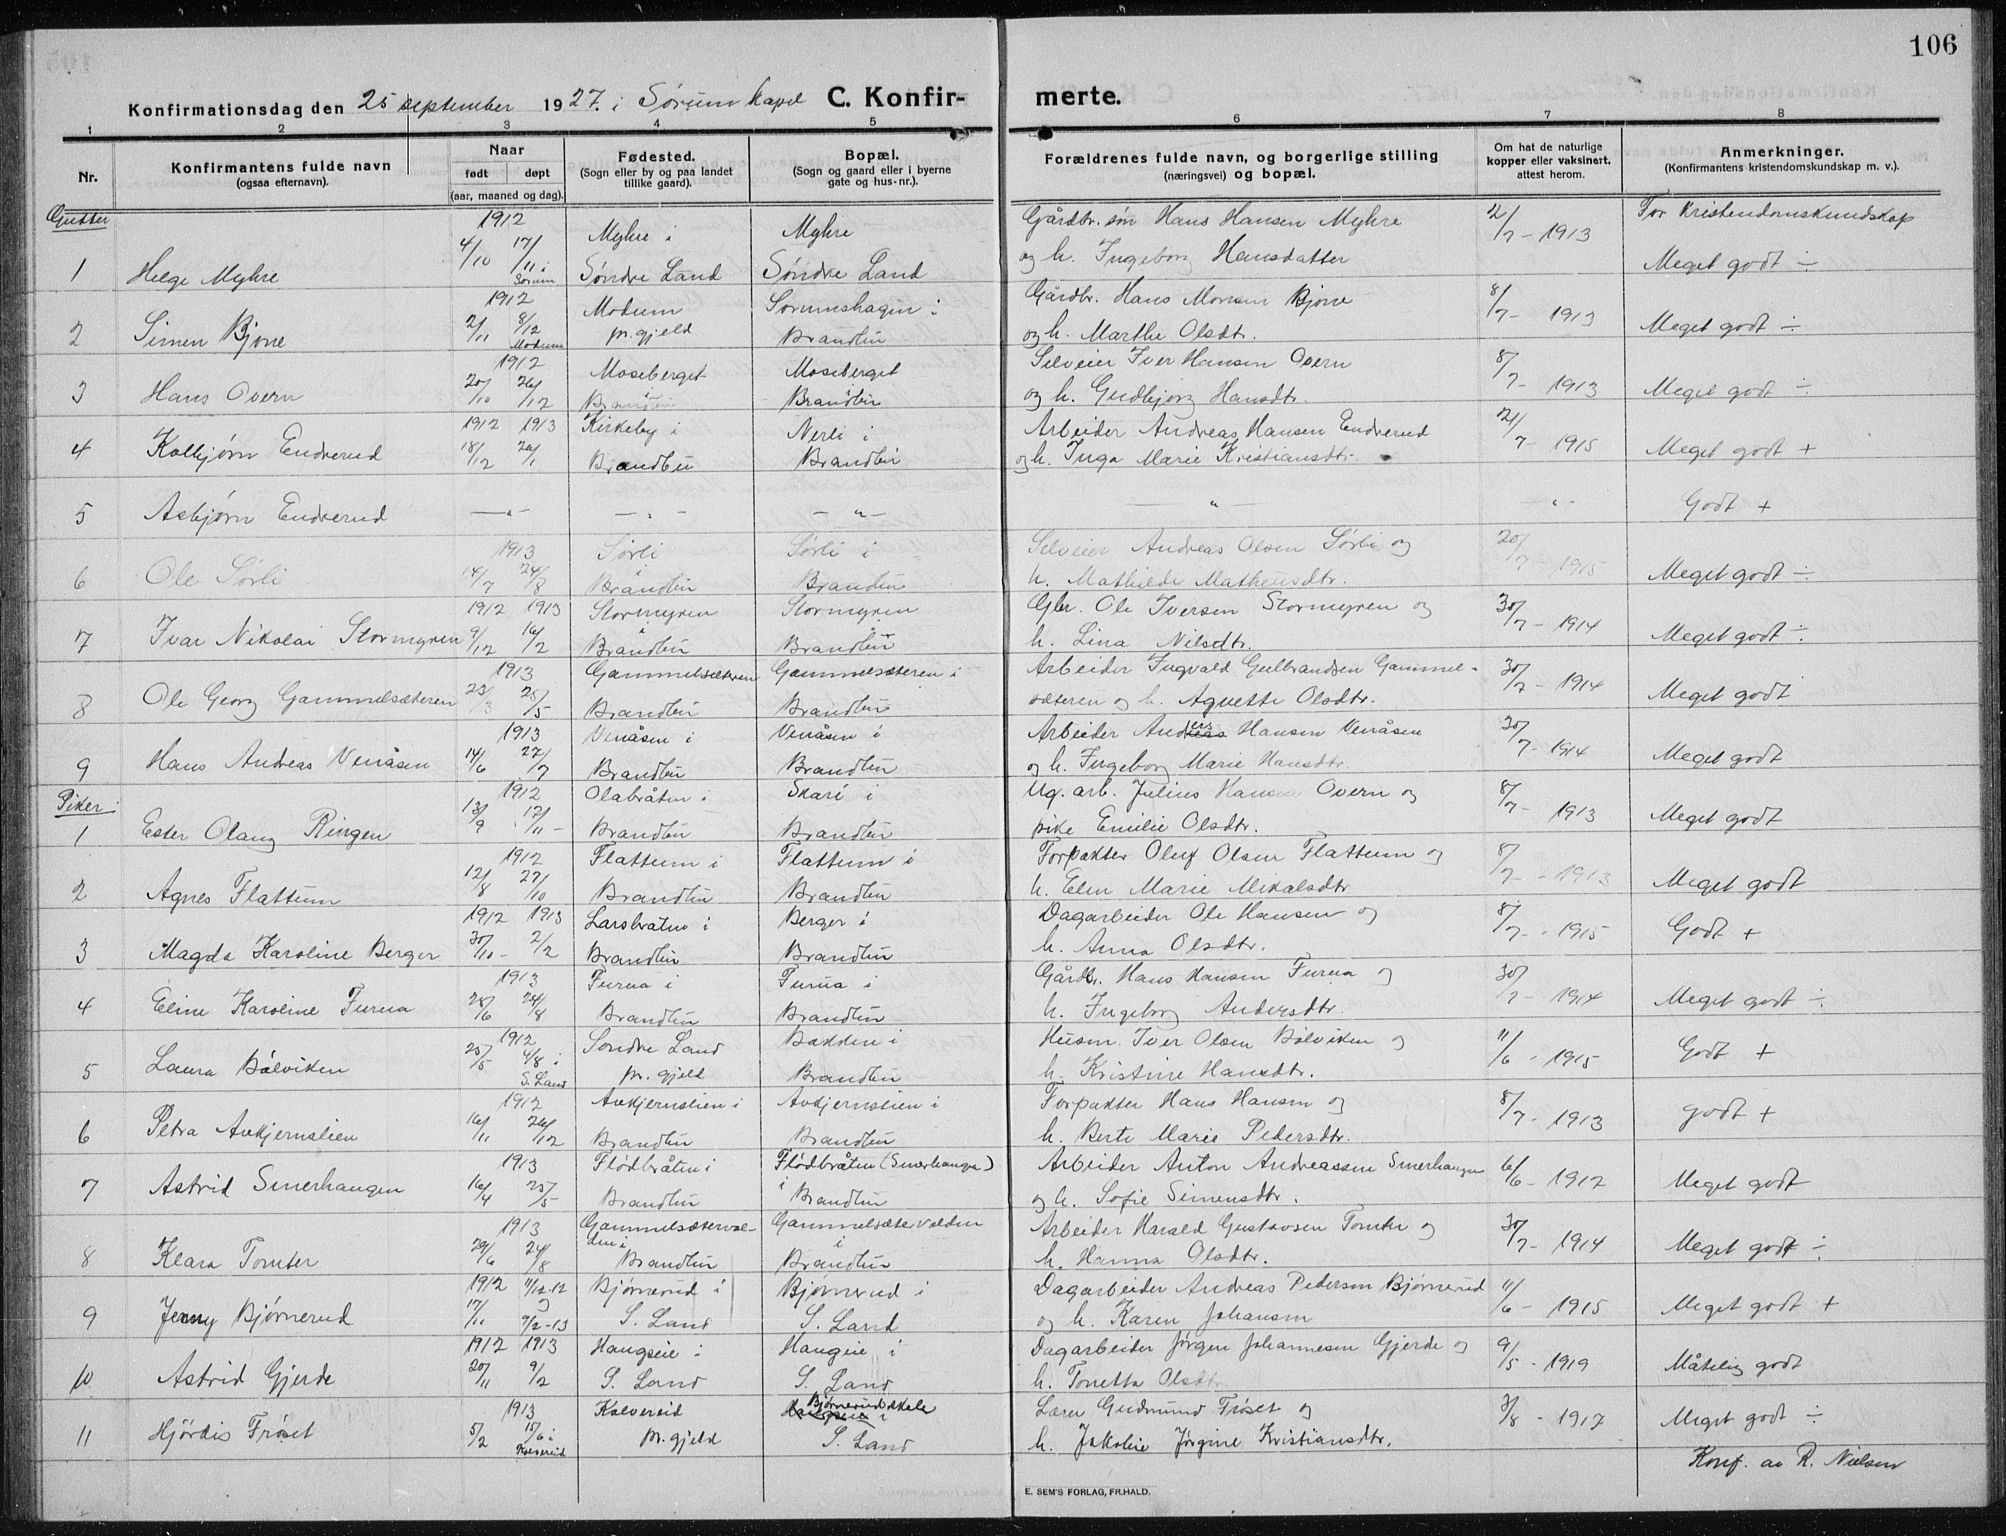 106
Konfirmationsdag den 25 september 1927. i Sørum kapel C. Konfir-merte.
1 2 3 4 5 6 7 8
Nr. Konfirmantens fulde navn (ogsaa efternavn). Naar født døpt (aar, maaned og dag). Fødested. (Sogn eller by og paa landet tillike gaard). Bopæl. (Sogn og gaard eller i byerne gate og hus-nr.). Forældrenes fulde navn, og borgerlige stilling (næringsvei) og bopæl. Om hat de naturlige kopper eller vaksinert, attest herom. Anmerkninger. (Konfirmantens kristendomskundskap m. v.).
Gutter
For Kristendomskundskap
1 Helge Myhre 1912 4/10 17/11 i Sørum Myhre i Søndre Land Myhre Søndre Land Gårdbr. søn Hans Hansen Myhre og h. Ingeborg Hansdatter 2/7 - 1913 Meget godt ÷
2 Simen Bjøne 1912 2/11 8/12 Modum Modum pr.gjeld Sørumshagen i Brandbu Gårdbr. Hans Monsen Bjøne og h. Marthe Olsdtr. 8/7 - 1913 Meget godt ÷
3 Hans Overn 1912 20/10 26/12 Moseberget i Brandbu Moseberget i Brandbu Selveier Iver Hansen Overn og h. Gudbjørg Hansdtr. 8/7 - 1913 Meget godt ÷
4 Kolbjørn Endrerud 1912 18/12 1913 26/1 Kirkeby i Brandbu Nerli i Brandbu Arbeider Andreas Hansen Endrerud og h. Inga Marie Kristiansdtr. 21/7 - 1915 Meget godt +
5 Asbjørn Endrerud — " — — " — — " — — " — - " - Godt +
6 Ole Sørli 1913 14/7 24/8 Sørli i Brandbu Sørli i Brandbu Selveier Andreas Olsen Sørli og h. Mathilde Matheusdtr. 20/7 - 1915 Meget godt ÷
7 Ivar Nikolai Stormyren 1912 9/12 1913 16/2 Stormyren i Brandbu Stormyren i Brandbu Gbr. Ole Iversen Stormyren og h. Lina Nilsdtr. 30/7 - 1914 Meget godt ÷
8 Ole Georg Gammelsæteren 1913 23/3 25/5 Gammelsæteren i Brandbu Gammelsæteren i Brandbu Arbeider Ingvald Gulbrandsen Gammel-sæteren og h. Agnette Olsdtr. 30/7 - 1914 Meget godt
9 Hans Andreas Venåsen 1913 14/6 27/7 Venåsen i Brandbu Venåsen i Brandbu Arbeider Anders Hansen Venåsen og h. Ingeborg Marie Hansdtr. 30/7 - 1914 Meget godt
Piker
1 Ester Olaug Ringen 1912 13/9 17/11 - Olabråten i Brandbu Skari i Brandbu Ug. arb. Julius Hansen Overn og pike Emilie Olsdtr. 8/7 - 1913 Meget godt
2 Agnes Flattum 1912 12/8 27/10 Flattum i Brandbu Flattum i Brandbu Forpakter Oluf Olsen Flattum og h. Elen Marie Mikalsdtr 8/7 - 1913 Meget godt
3 Magda Karoline Berger 1912 30/10 - 1913 2/2 Larsbråten i Brandbu Berger i Brandbu Dagarbeider Ole Hansen og h. Anna Olsdtr. 8/7 - 1915 Godt +
4 Eline Karoline Furua 1913 28/6 24/8 Furua i Brandbu Furua i Brandbu Gårdb. Hans Hansen Furua og h. Ingeborg Andersdtr. 30/7 - 1914 Meget godt ÷
5 Laura Bålviken 1912 25/5 4/8 i S. Land Søndre Land pr. gjeld Bakken i Brandbu Husm. Iver Olsen Bålviken og h. Kristine Hansdtr. 11/6 - 1915 Godt +
6 Petra Avkjernslien 1912 16/11 26/12 Avkjernslien i Brandbu Avkjernslien i Brandbu Forpakter Hans Hansen og h. Berte Marie Pedersdtr. 8/7 - 1913 godt +
7 Astrid Smerhaugen 1913 16/4 25/5 Flødbråten i Brandbu Flødbråten (Smerhaugen) i Brandbu Arbeider Anton Andreassen Smerhaugen og h. Sofie Simensdtr. 6/6 - 1912 Meget godt
8 Klara Tomter 1913 29/6 24/8 Gammelsæterval-den i Brandbu Gammelsætervalden i Brandbu Arbeider Harald Gustavsen Tomter og h. Hanna Olsdtr. 30/7 - 1914 Meget godt ÷
9 Jenny Bjørnerud 1912 17/11 11/12-12 og 9/2-13 Bjørnerud i S. Land Bjørnerud i S. Land Dagarbeider Andreas Pedersen Bjørnerud og h. Karen Johansen 11/6 - 1915 Meget godt +
10 Astrid Gjerde 1912 20/11 1913 9/2 Haugseie i S. Land Haugeie i S. Land Dagarbeider Jørgen Johannesen Gjerde og h. Tonetta Olsdtr 9/5 - 1919 Måtelig godt
11 Hjørdis Frøset 1913 5/2 15/6 i Kolvereid Kolvereid pr.gjeld Bjørnerud skole i S. Land Lærer Gudmund Frøset og h. Jakobie Jørgine Kristiansdtr. 3/8 - 1917 Meget godt ÷
Konf. av R. Nielsen
E. SEM'S FORLAG, FR.HALD.